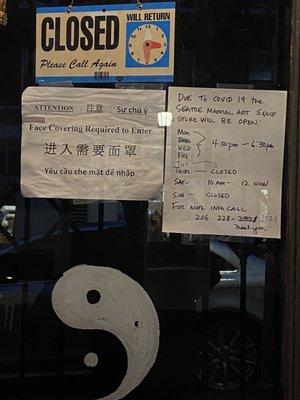 CLOSED
WILL RETURN
Please Call Again
ATTENTION 注意 Sự chú ý
Face Covering Required to Enter
进入需要面罩
Yêu cầu che mặt để nhập
DUE TO COVID 19 THE
SEATTLE MARTIAL ART EQUIP
STORE WILL BE OPEN.
MON
TUES
WED
FRI
4:00pm - 6:30pm
THUR. - CLOSED
SAT- 10 AM - 12 NOON
SUN - CLOSED
FOR MORE INFO CALL
206 228-
Thank you